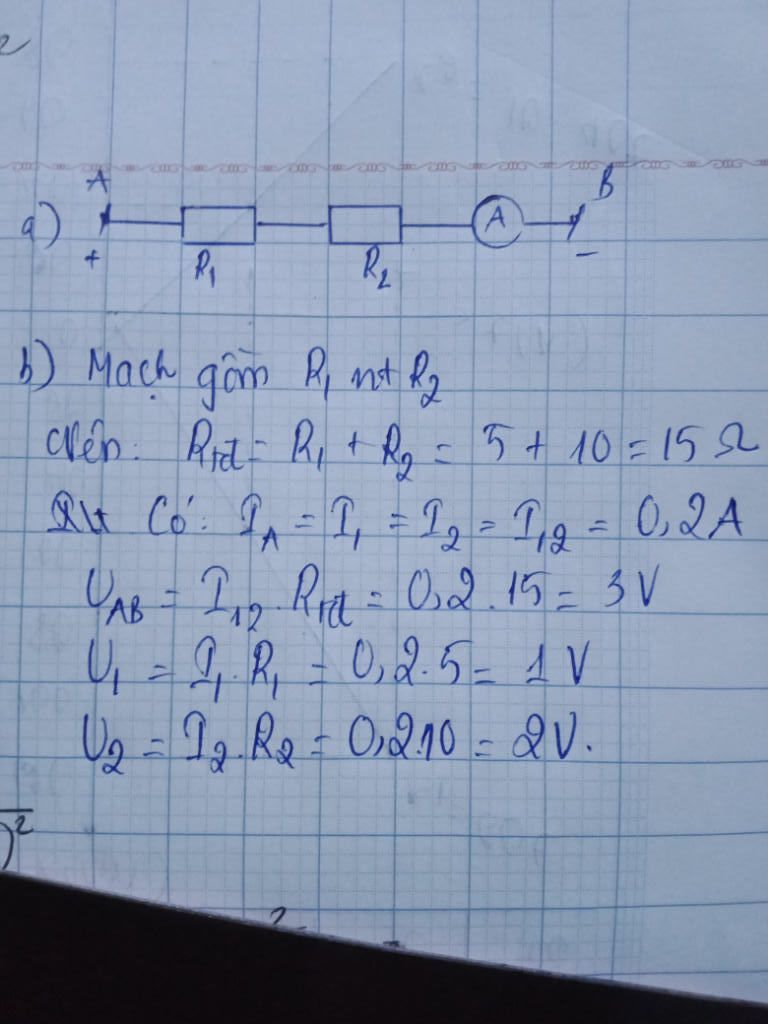 A B
a) A
+ R₁ R₂ −
b) Mạch gồm R₁ nt R₂
Nên: Rtđ = R₁ + R₂ = 5 + 10 = 15 Ω
Có: I_A = I₁ = I₂ = I₁₂ = 0,2A
U_AB = I₁₂ . Rtđ = 0,2 . 15 = 3 V
U₁ = I₁ . R₁ = 0,2 . 5 = 1 V
U₂ = I₂ . R₂ = 0,2.10 = 2V.
)²